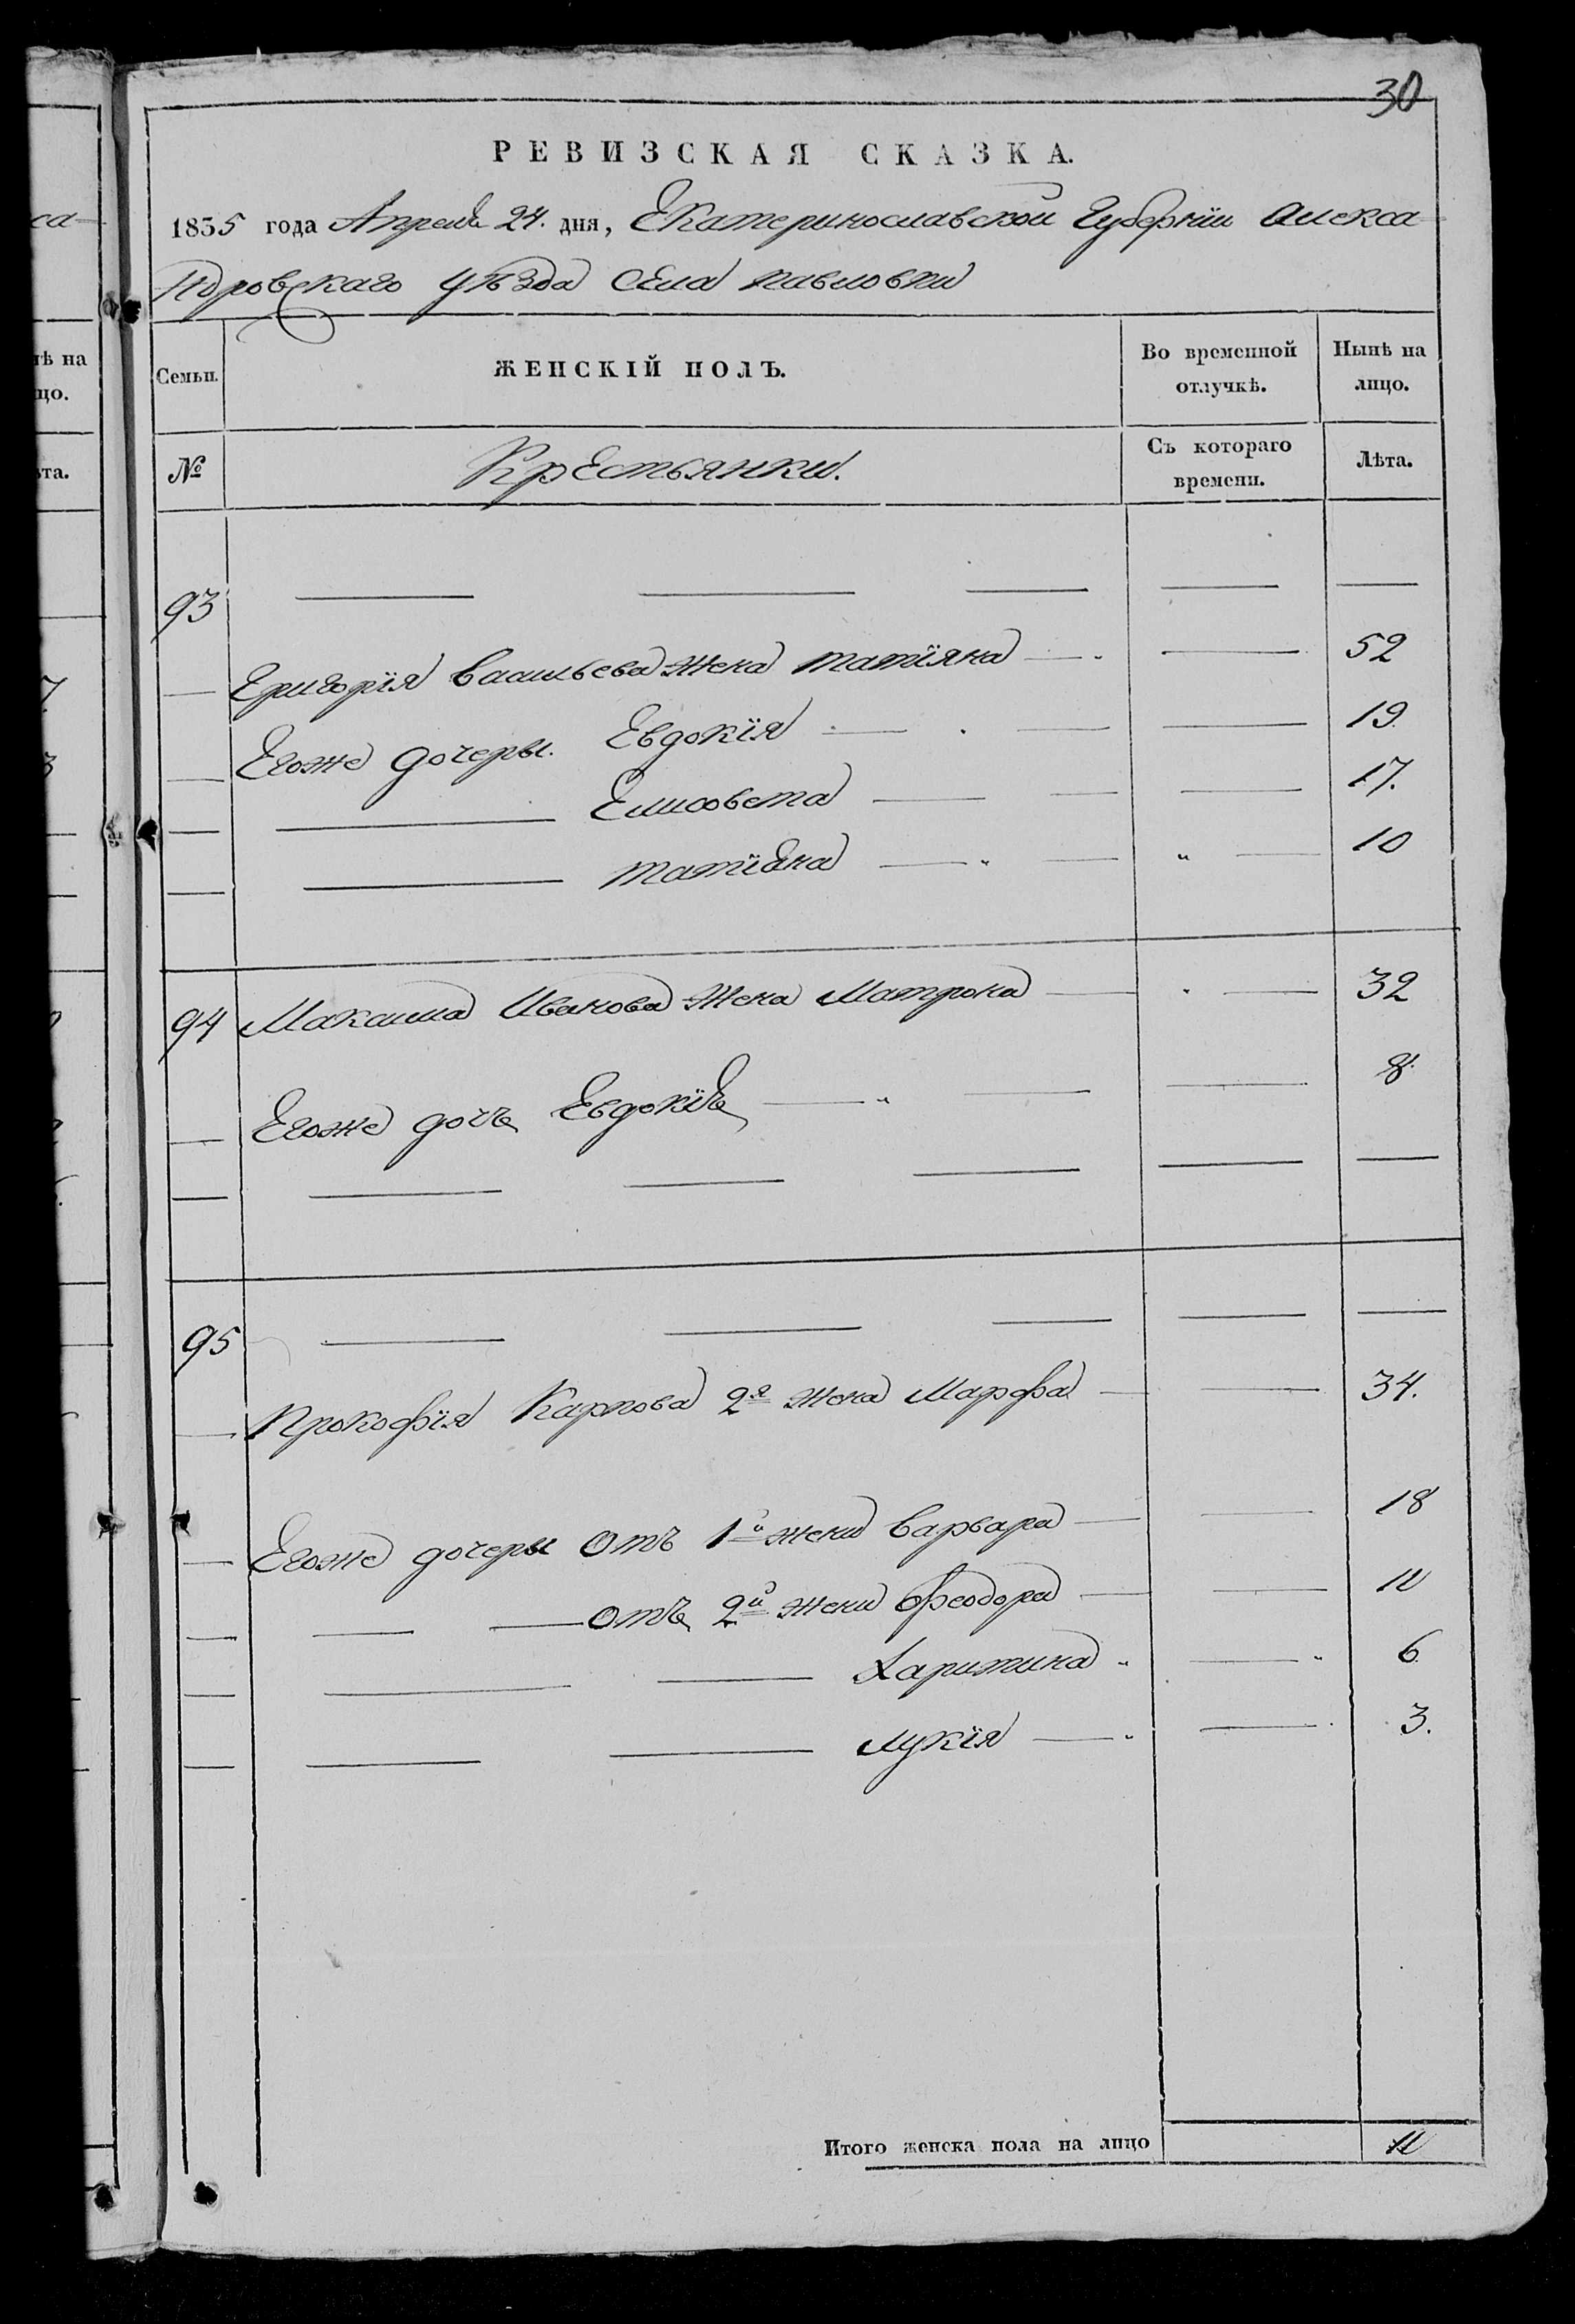 30
РЕВИЗСКАЯ СКАЗКА.
1835 года Апреля 24. дня, Екатеринославской Губернїи Алекса-
ндровскаго уѣзда Села павловки
Семьи. ЖЕНСКІЙ ПОЛЪ. Во временной отлучкѣ. Нынѣ на лицо.
№ Крестьянки. Съ котораго времени. Лѣта.
93
Григорїя васильева жена татїяна 52
Егоже дочеры. Евдокїя 19
Елисовета 17.
татїяна 10
94 Максима Иванова жена Матрона 32
Егоже дочь Евдокїя 8.
95
Прокофїя Карпова 2я жена Марфа 34.
Егоже дочеры отъ 1й жени варвара 18
отъ 2й жени Феодора 10
Харитина 6
лукїя 3.
Итого женска пола на лицо 11
са-
нѣ на
цо.
ѣта.